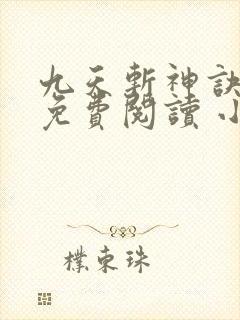 九天斬神訣
免費閱讀 小
樸東珠